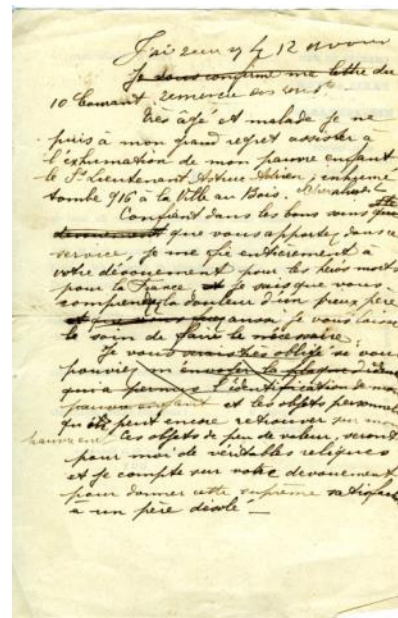 J'ai reçu
Je vous confirme ma lettre du
10 Courant remercie vos
Très âgé et malade je ne
puis à mon grand regret assister à
l'exhumation de mon pauvre enfant
le S. Lieutenant Astruc Adrien, inhumé
tombe 916 à la Ville au Bois.
Confiant dans les bons soins que
dévouement que vous apportez dans ce
service, je me fie entièrement à
votre dévouement pour les héros morts
pour la France, et je sais que vous
comprenez la douleur d'un vieux père
et que vous aussi je vous laisse
le soin de faire le nécessaire.
Je vous serais très obligé si vous
pouviez m'envoyer la plaque d'identité
qui a permis l'identification de mon
pauvre enfant et les objets personnels
qu'on peut encore retrouver sur mon
pauvre enf Ces objets de peu de valeur, seront
pour moi de véritables reliques
et je compte sur votre dévouement
pour donner cette suprême satisfact
à un père désolé —